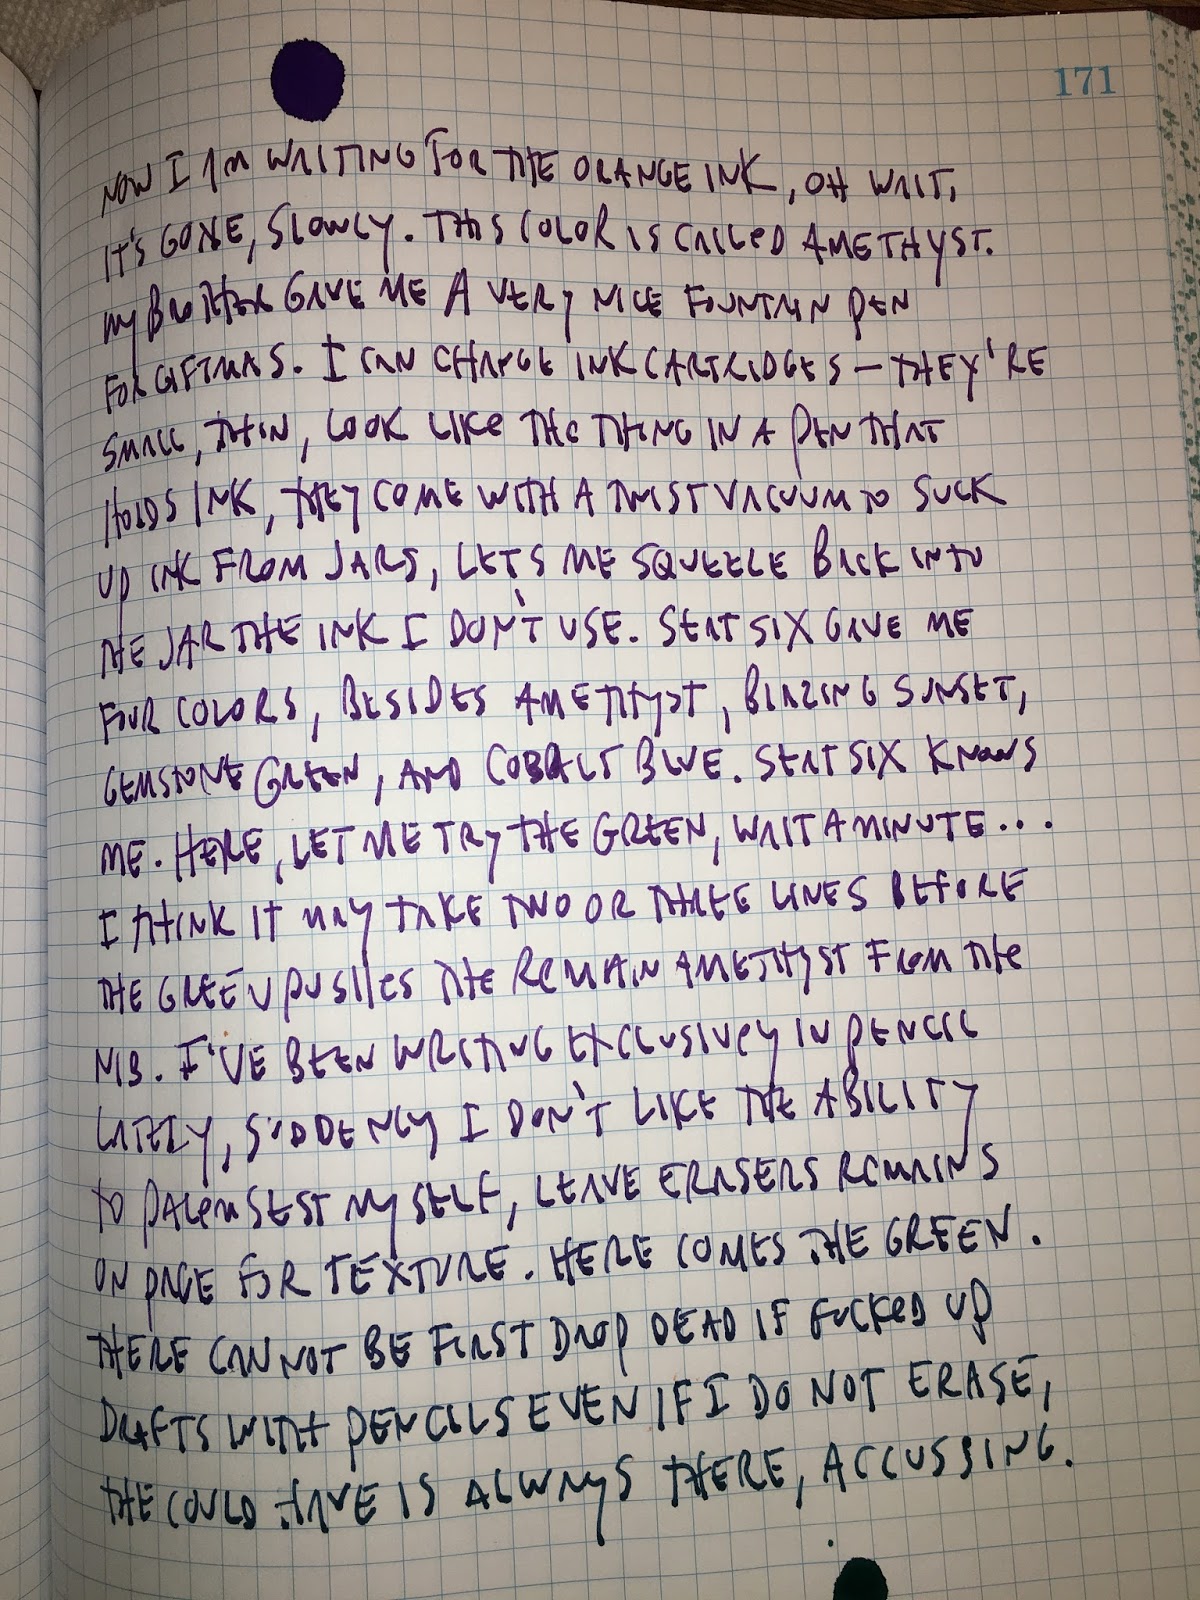 171
NOW I AM WRITING FOR THE ORANGE INK, OH WAIT,
IT'S GONE, SLOWLY. THIS COLOR IS CALLED AMETHYST.
MY BROTHER GAVE ME A VERY NICE FOUNTAIN PEN
FOR GIFTMAS. I CAN CHANGE INK CARTRIDGES - THEY'RE
SMALL, THIN, LOOK LIKE THE THING IN A PEN THAT
HOLDS INK, THEY COME WITH A TWIST VACUUM TO SUCK
UP INK FROM JARS, LETS ME SQUEEZE BACK INTO
THE JAR THE INK I DON'T USE. SEAT SIX GAVE ME
FOUR COLORS, BESIDES AMETHYST, BLAZING SUNSET,
GEMSTONE GREEN, AND COBALT BLUE. SEAT SIX KNOWS
ME. HERE, LET ME TRY THE GREEN, WAIT A MINUTE...
I THINK IT MAY TAKE TWO OR THREE LINES BEFORE
THE GREEN PUSHES THE REMAIN AMETHYST FROM THE
NIB. I'VE BEEN WRITING EXCLUSIVELY IN PENCIL
LATELY, SUDDENLY I DON'T LIKE THE ABILITY
TO PALEMSEST MYSELF, LEAVE ERASERS REMAINS
ON PAGE FOR TEXTURE. HERE COMES THE GREEN.
THERE CAN NOT BE FIRST DROP DEAD IF FUCKED UP
DRAFTS WITH PENCILS EVEN IF I DO NOT ERASE,
THE COULD HAVE IS ALWAYS THERE, ACCUSSING.